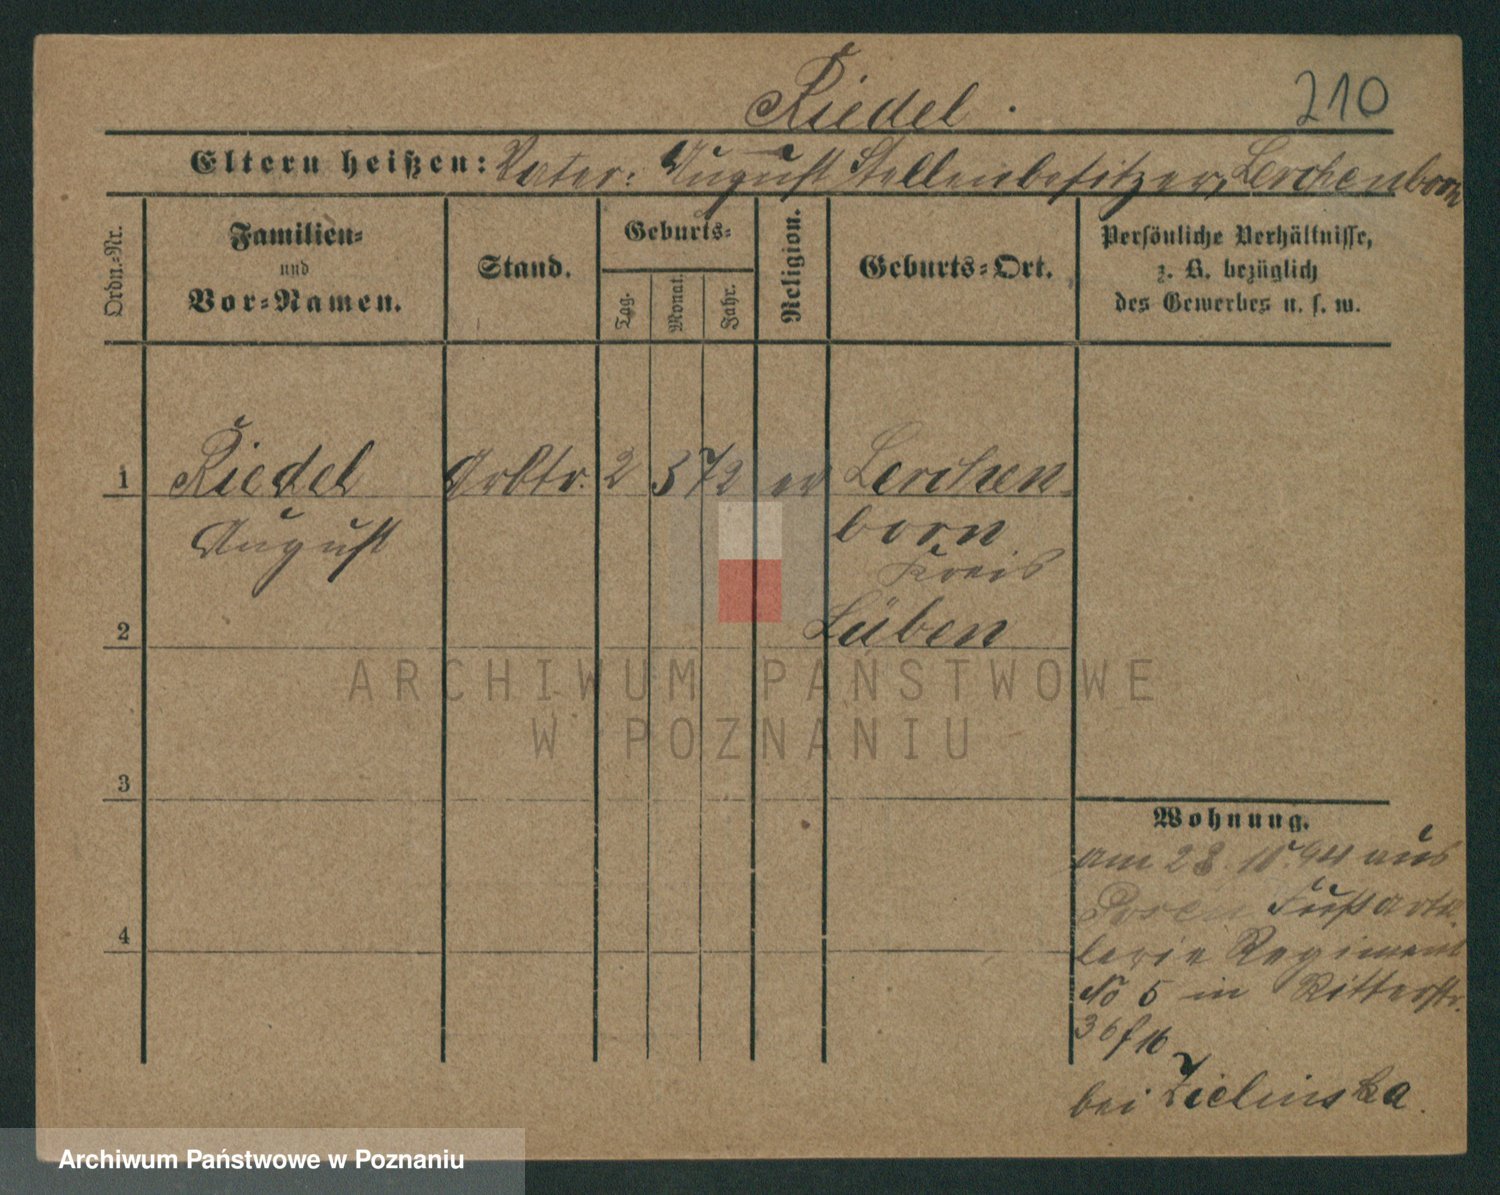 Riedel.
210
Eltern heißen: Vater: August Stellenbesitzer, Lerchenborn
Ordn.-Nr.
Familien-
und
Vor-Namen.
Stand.
Geburts-
Tag.
Monat.
Jahr.
Religion.
Geburts-Ort.
Persönliche Verhältnisse,
z. B. bezüglich
des Gewerbes u. s. w.
1 Riedel Arbtr. 2 5 72 ev Lerchen
August born
Kreis
2 Lüben
ARCHIWUM PAŃSTWOWE
W POZNANIU
3
Wohnung.
am 28. 10. 94 aus
Posen Fußartil
4
lerie Regiment
No 5 in Ritterstr.
36
bei Zielinska.
Archiwum Państwowe w Poznaniu